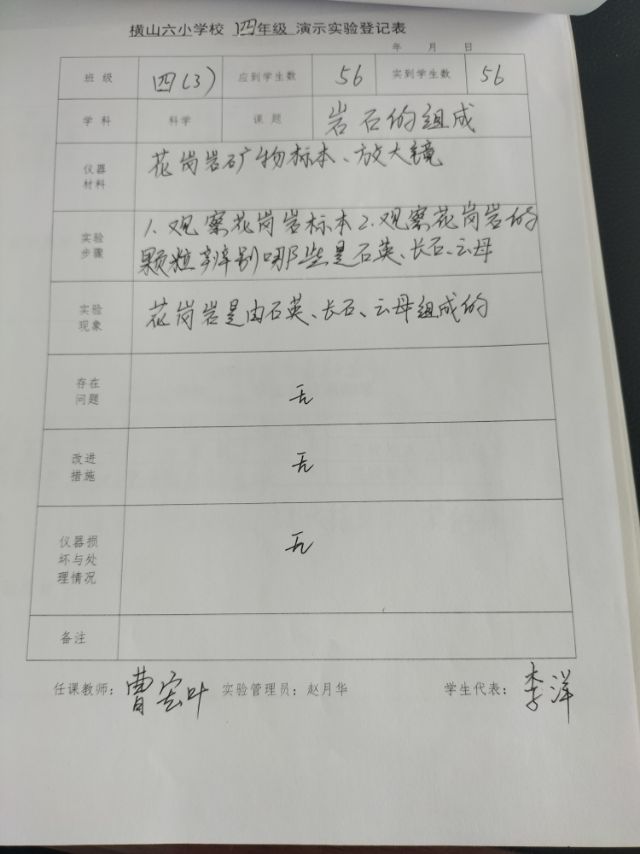 横山六小学校 四年级 演示实验登记表
年 月 日
班级 四(3) 应到学生数 56 实到学生数 56
学科 科学 课题 岩石的组成
仪器材料 花岗岩矿物标本、放大镜
实验步骤 1.观察花岗岩标本2.观察花岗岩的
颗粒辨别哪些是石英、长石、云母
实验现象 花岗岩是由石英、长石、云母组成的
存在问题 无
改进措施 无
仪器损坏与处理情况 无
备注
任课教师：曹宏叶 实验管理员：赵月华 学生代表：李洋